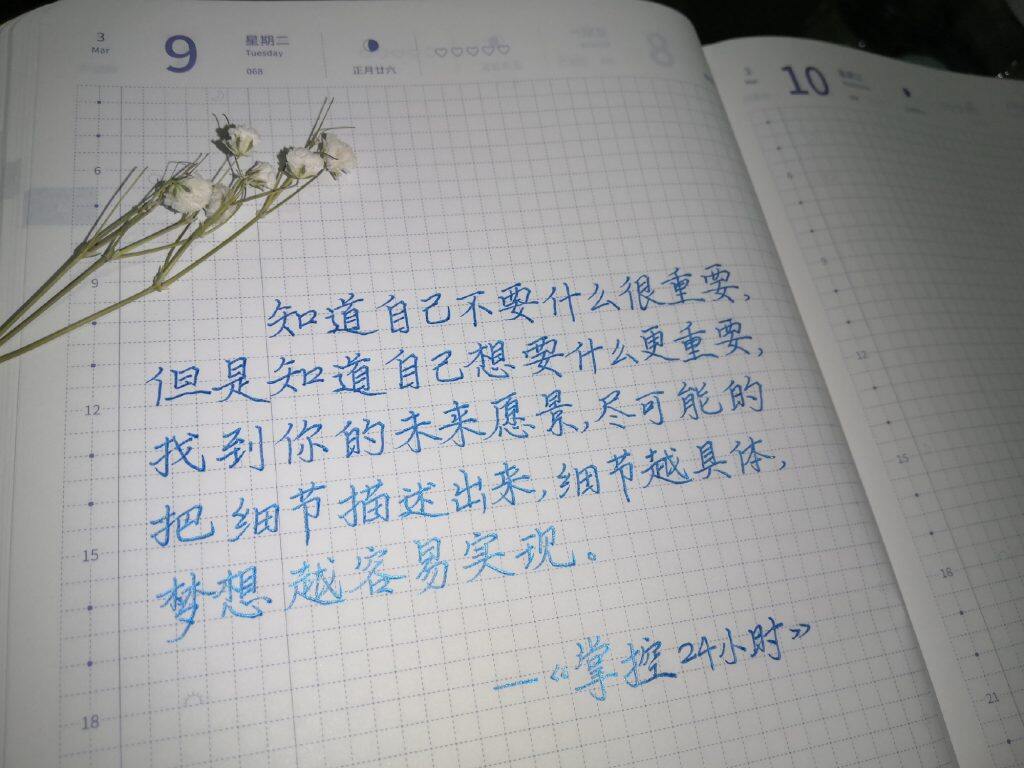 3
Mar
9
星期二
Tuesday
068
正月廿六
8
10
6
9
12
15
18
12
15
18
21
知道自己不要什么很重要,
但是知道自己想要什么更重要,
找到你的未来愿景,尽可能的
把细节描述出来,细节越具体,
梦想越容易实现。
—《掌控24小时》